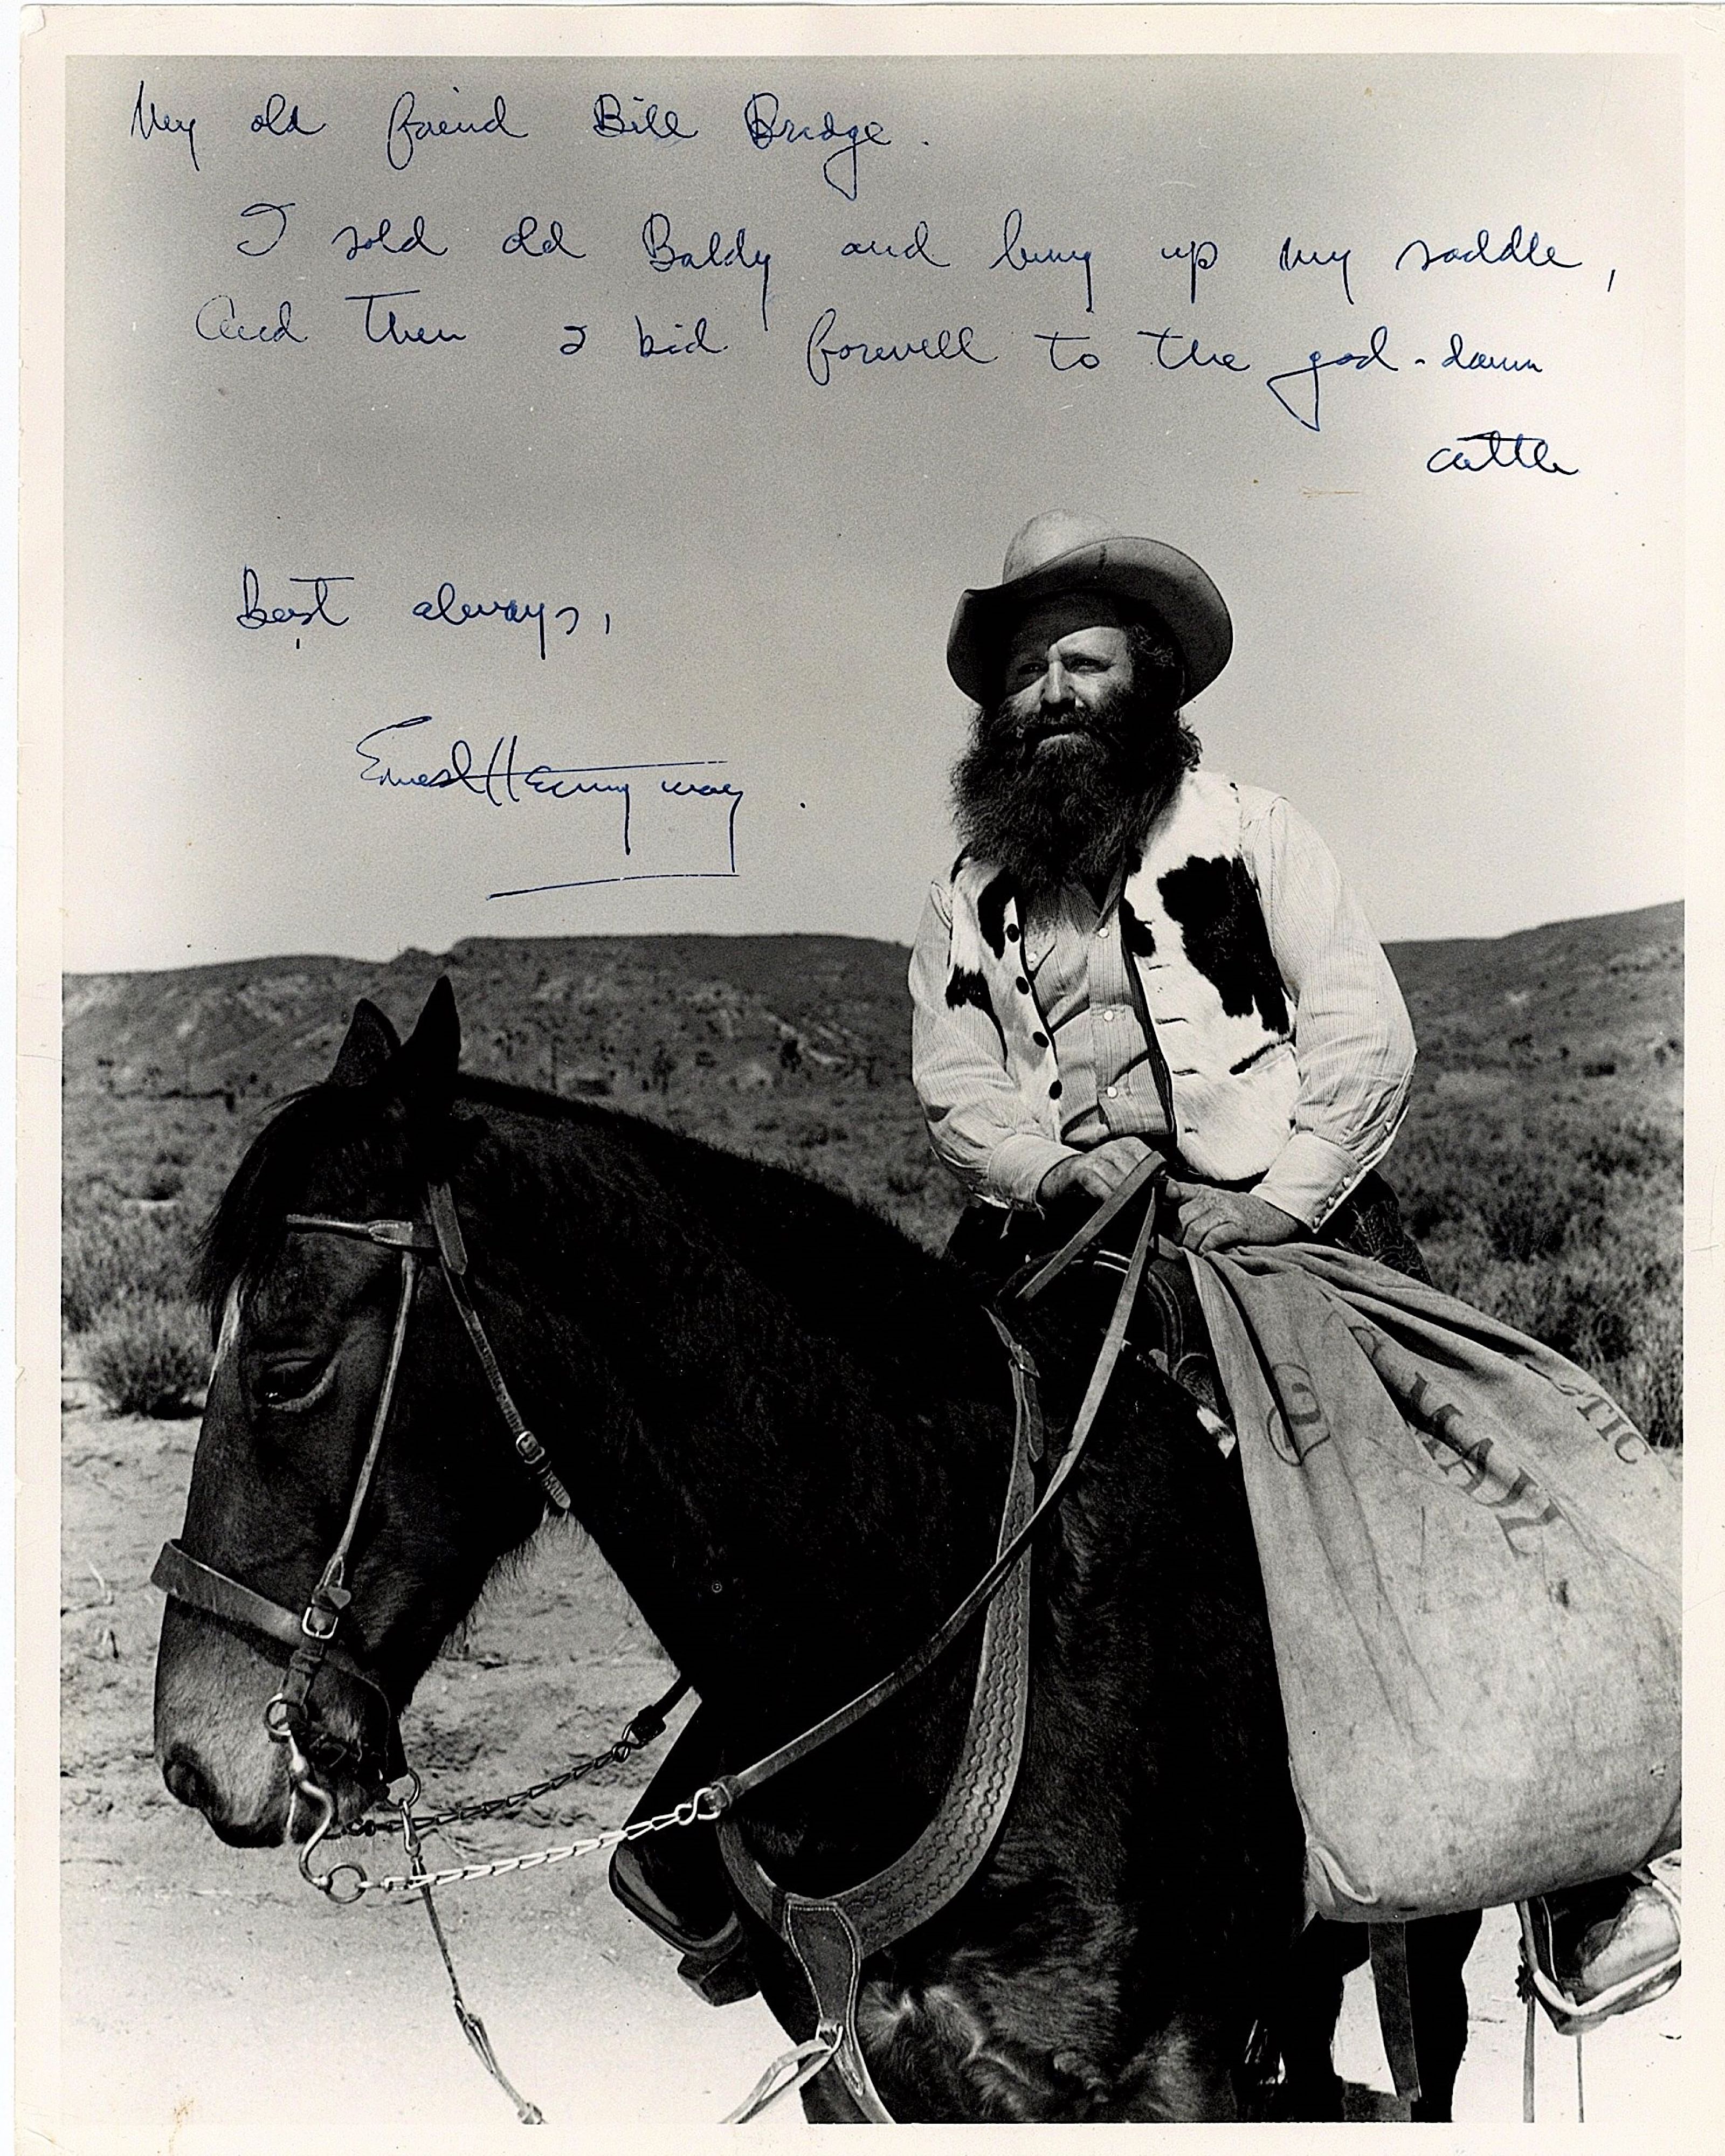 My old friend Bill Bridge.
I sold old Baldy and hung up my saddle,
And then I bid farewell to the god-damn
cattle
Best always,
Ernest Hemingway.
MAIL
TIC